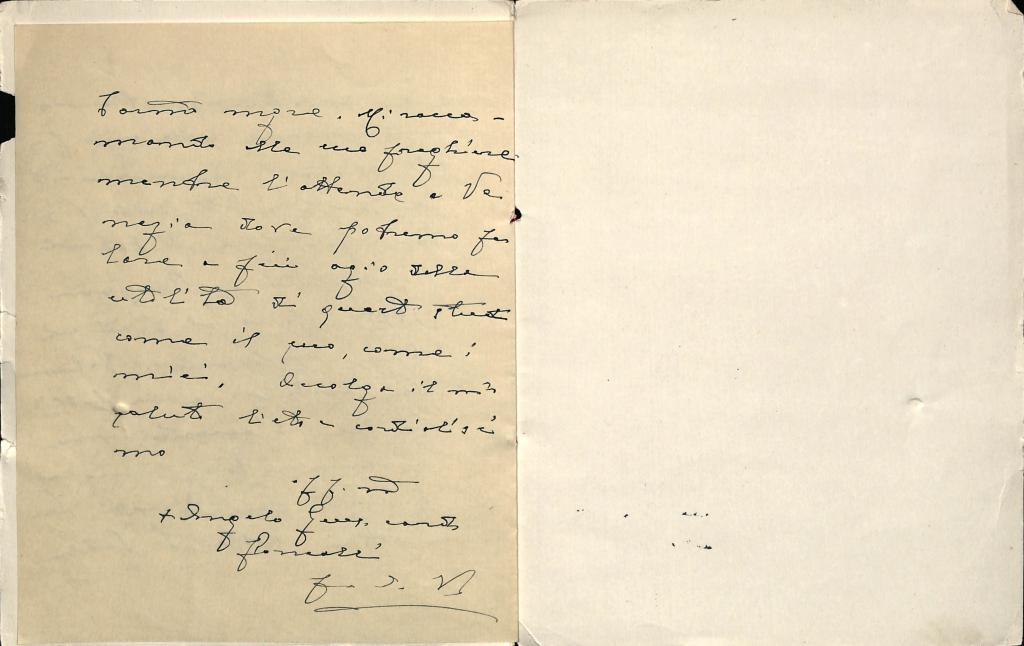 mgre. Mi racco-
mando alle sue preghiere
mentre l'attendo a Ve
nezia dove potremo par
lare a più agio della
utilità di questi studi
come il suo, come i
miei. Accolga il mio
saluto lieto e cordialissi
mo
+ Angelo Gius. card.
Roncalli